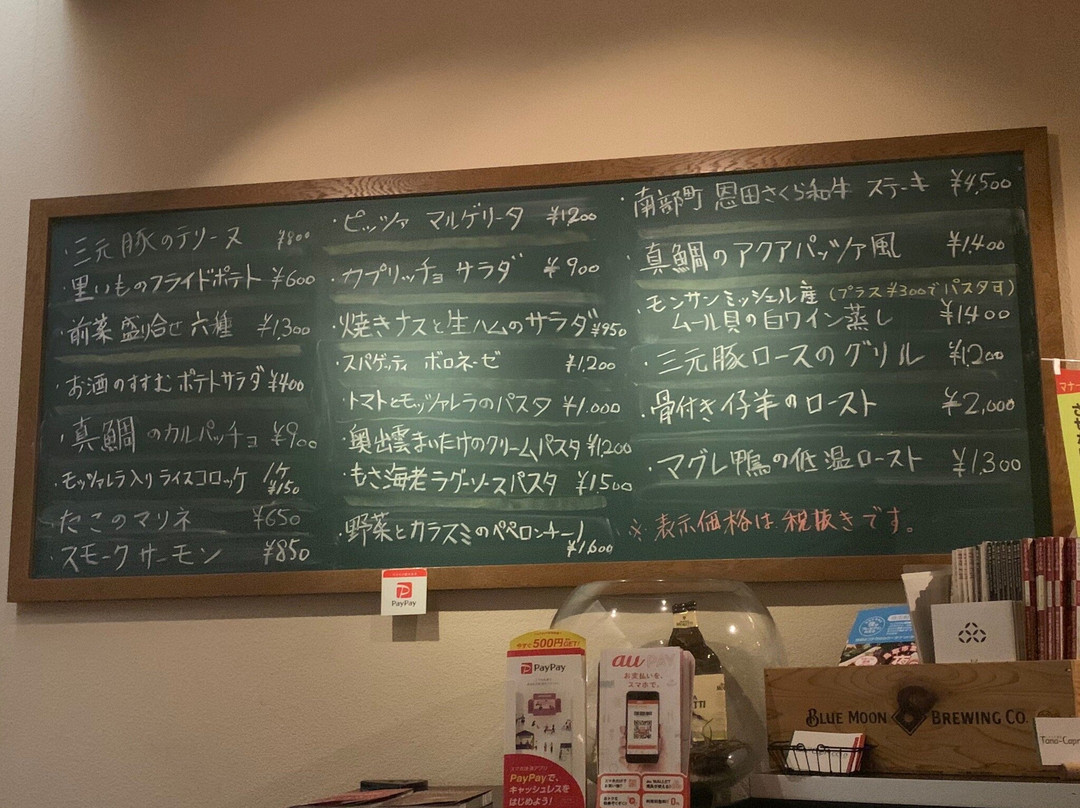 ・三元豚のテリーヌ ¥800
・里いものフライドポテト ¥600
・前菜盛り合せ六種 ¥1,300
・お酒のすすむポテトサラダ ¥400
・真鯛のカルパッチョ ¥900
・モッツァレラ入りライスコロッケ 1ケ ¥150
・たこのマリネ ¥650
・スモークサーモン ¥850
・ピッツァ マルゲリータ ¥1200
・カプリッチョ サラダ ¥900
・焼きナスと生ハムのサラダ ¥950
・スパゲッティ ボロネーゼ ¥1,200
・トマトとモッツァレラのパスタ ¥1,000
・奥出雲まいたけのクリームパスタ ¥1200
・もさ海老ラグーソースパスタ ¥1500
・野菜とカラスミのペペロンチーノ ¥1,600
・南部町 恩田さくら和牛 ステーキ ¥4,500
・真鯛のアクアパッツァ風 ¥1,400
・モンサンミッシェル産 (プラス¥300でパスタ可)
ムール貝の白ワイン蒸し ¥1400
・三元豚ロースのグリル ¥1200
・骨付き仔羊のロースト ¥2,000
・マグレ鴨の低温ロースト ¥1,300
※表示価格は税抜きです。
PayPay
今すぐ500円
PayPay
PayPayで、
キャッシュレスを
はじめよう!
au PAY
お支払いを、
スマホで。
BLUE MOON BREWING CO.
マナー